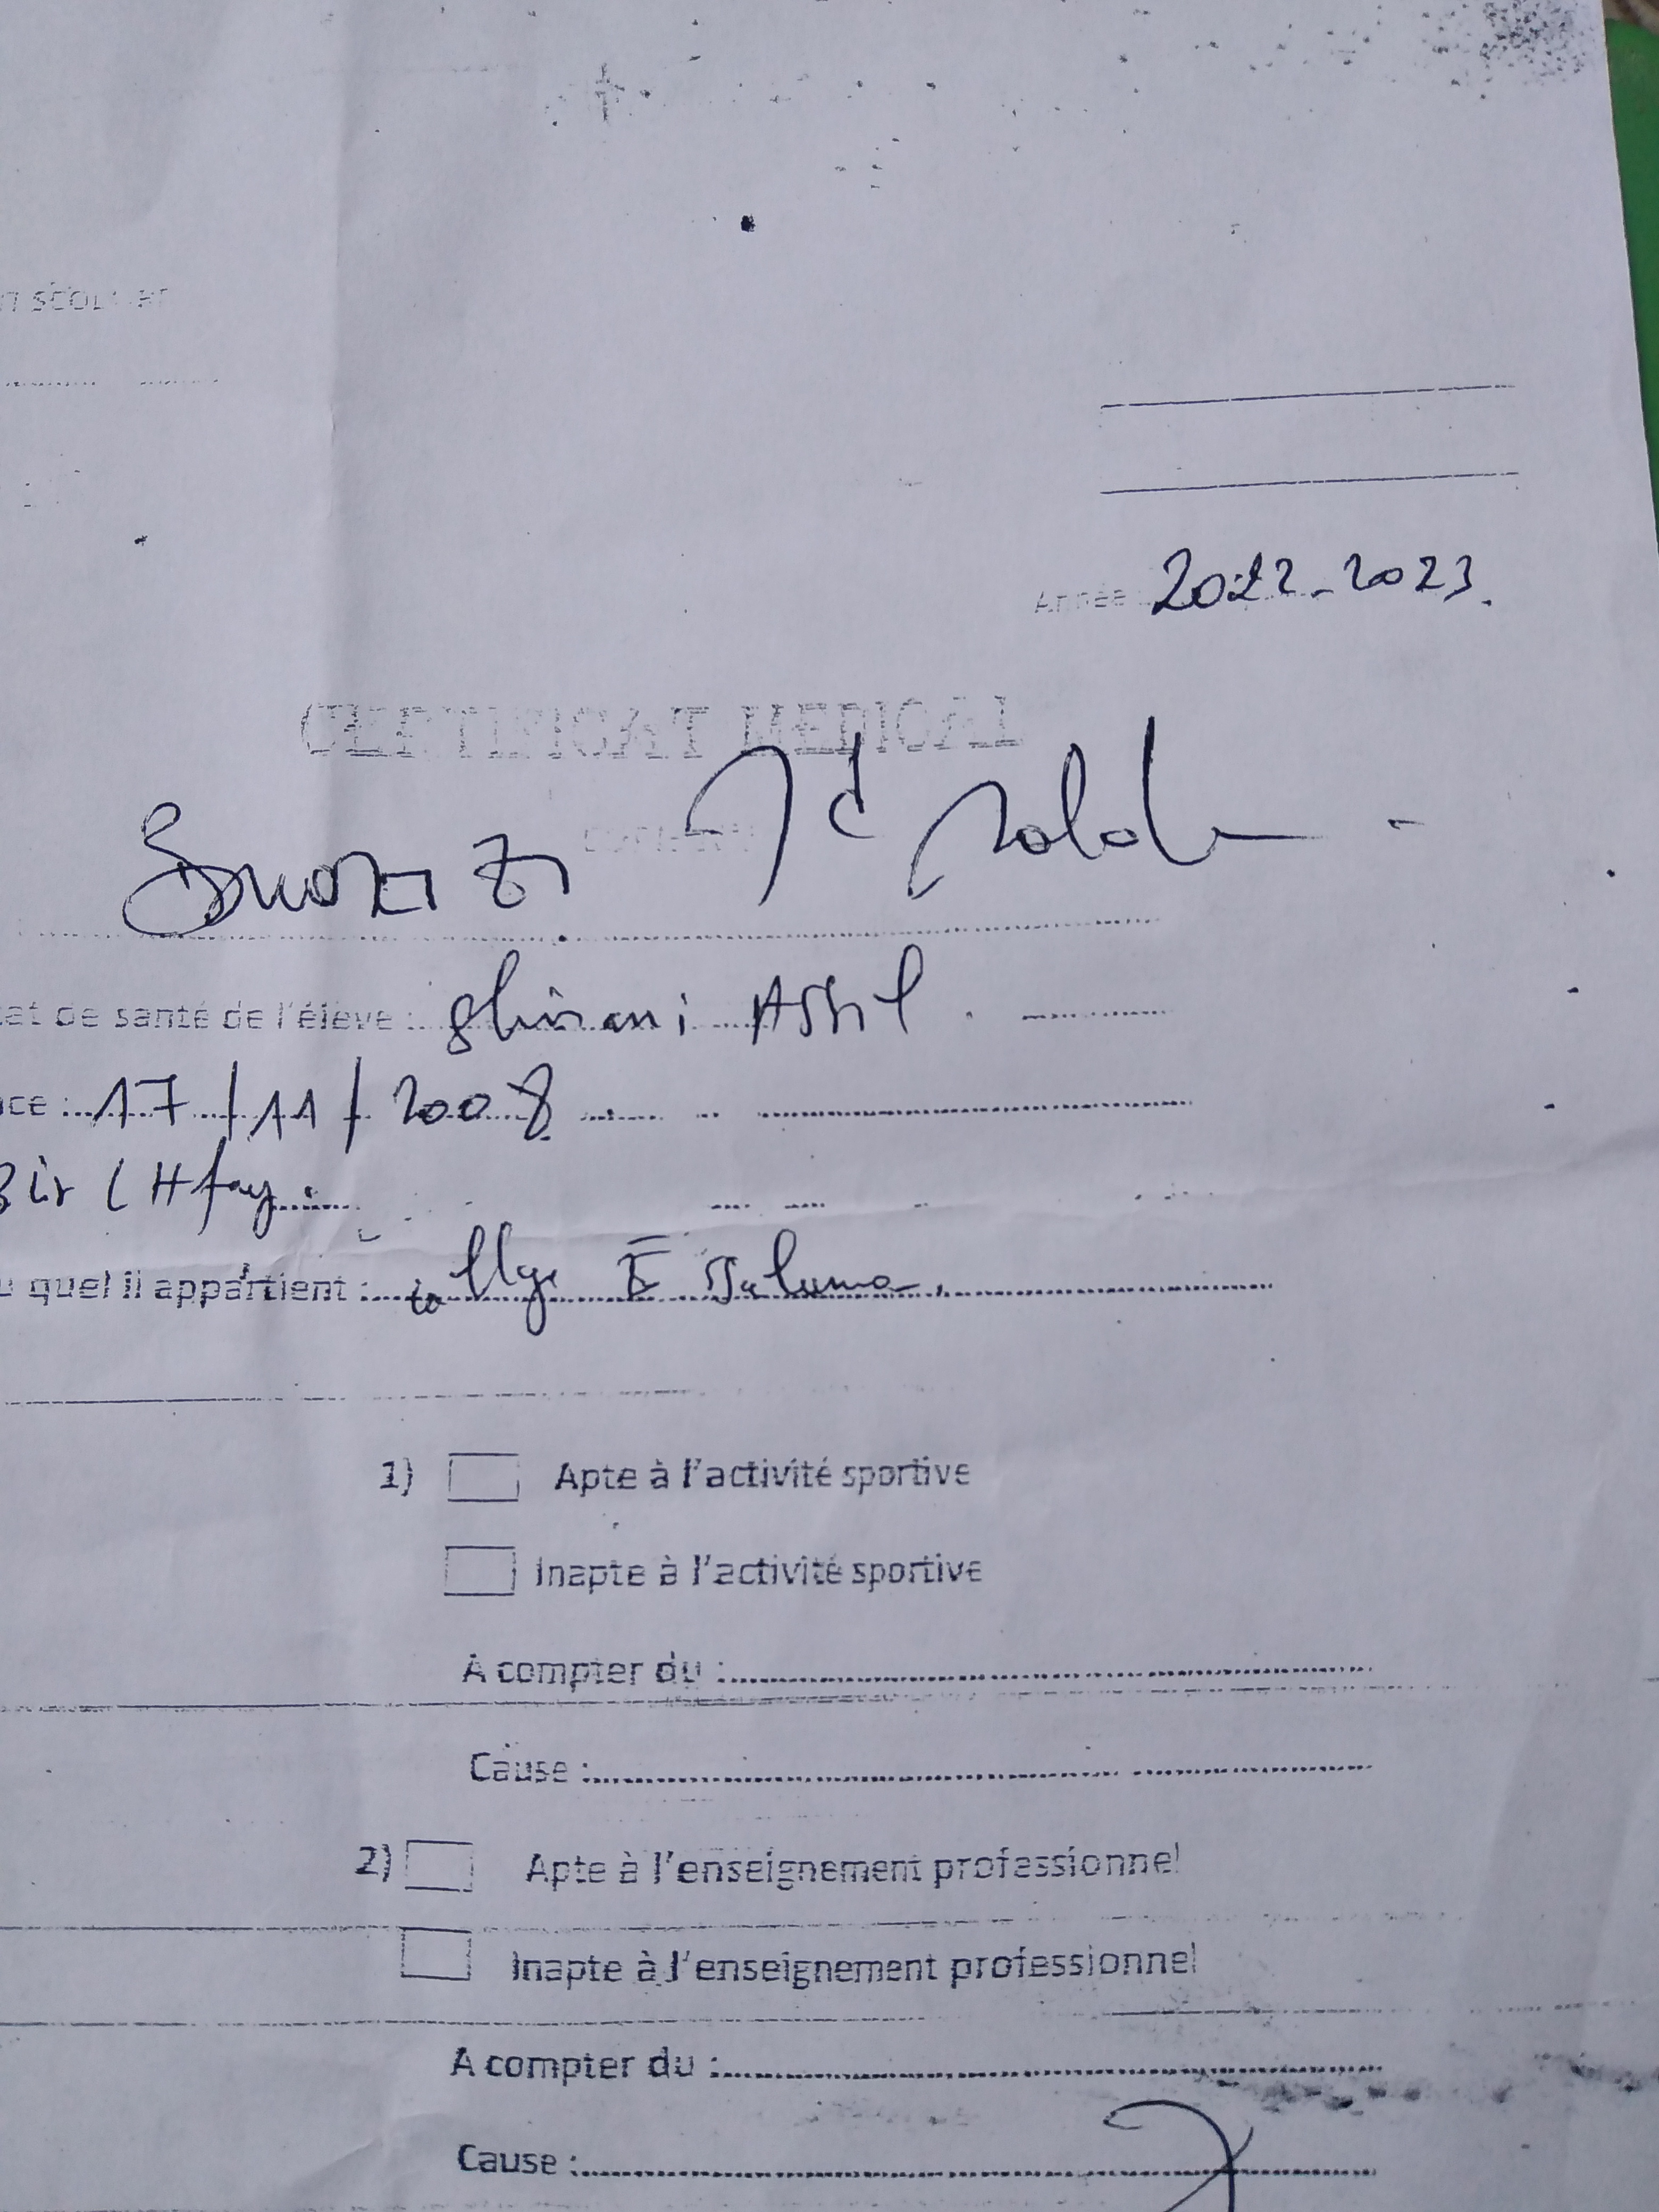 Année : 2022-2023.
CERTIFICAT MEDICAL
de santé de l'élève : ghirani Assil.
17/11/2008
Bir lHfay.
quel il appartient : Essaluma.
1) Apte à l'activité sportive
Inapte à l'activité sportive
A compter du :
Cause :
2) Apte à l'enseignement professionnel
Inapte à l'enseignement professionnel
A compter du :
Cause :